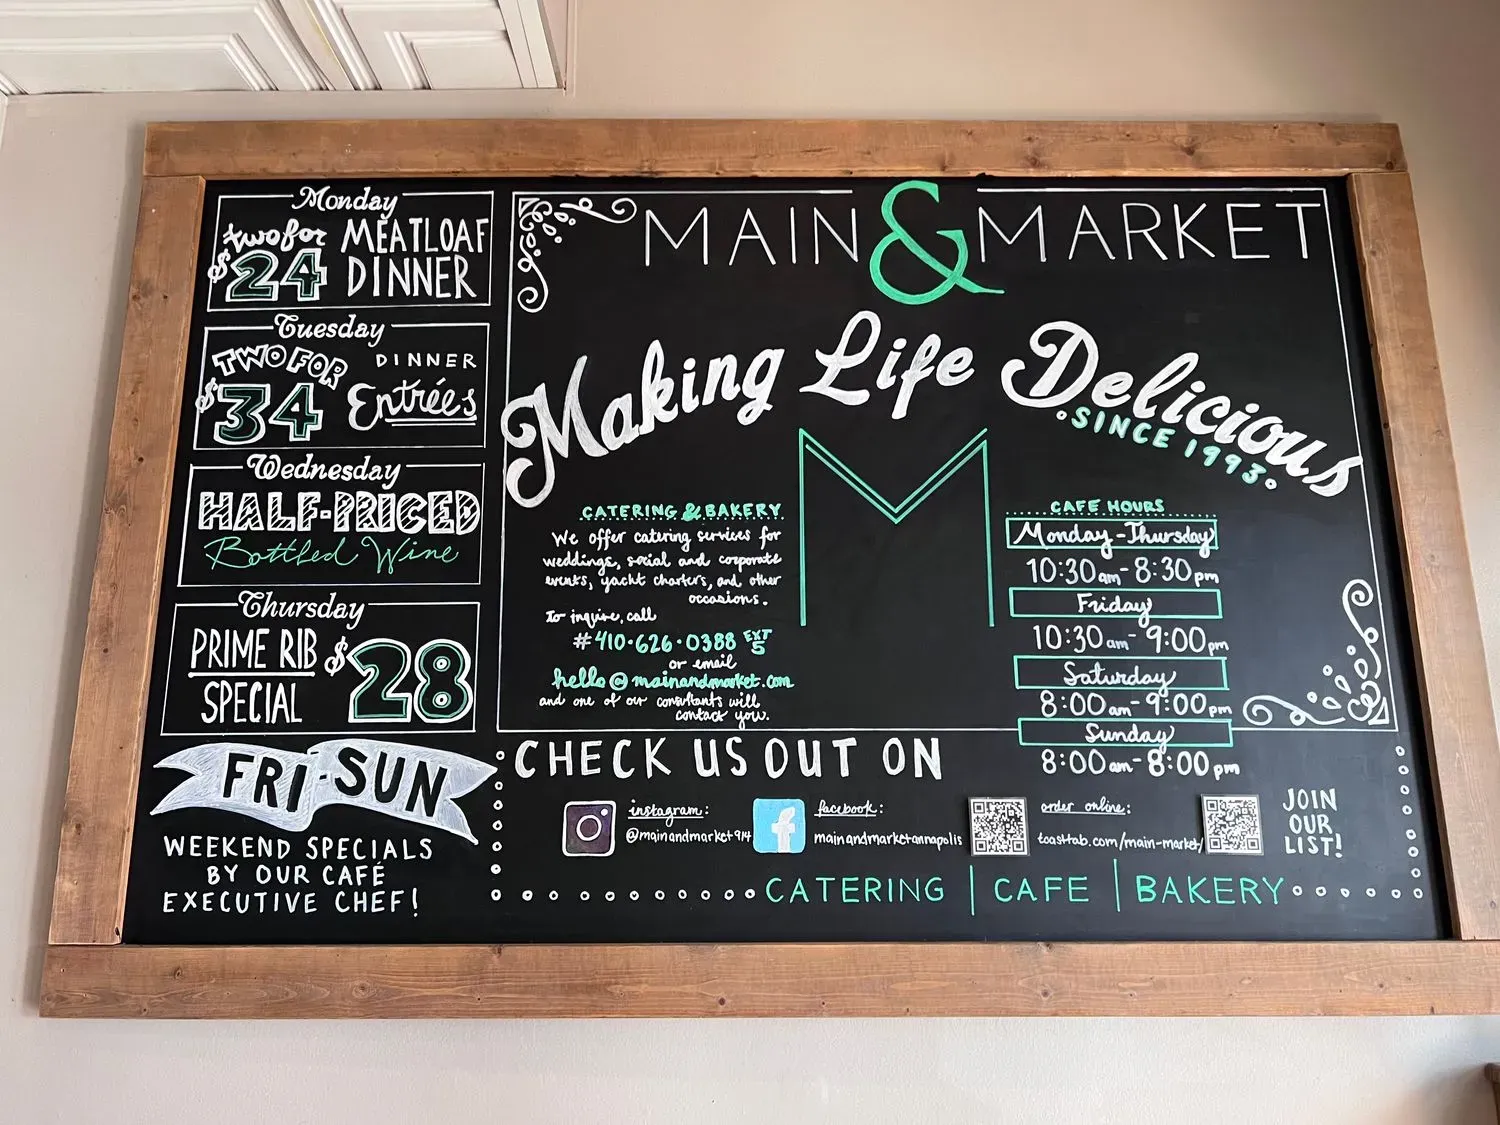 Monday
two for
$24
MEATLOAF
DINNER
Tuesday
TWO FOR
$34
DINNER
Entrées
Wednesday
HALF-PRICED
Bottled Wine
Thursday
PRIME RIB
SPECIAL
$28
FRI-SUN
WEEKEND SPECIALS
BY OUR CAFÉ
EXECUTIVE CHEF!
MAIN & MARKET
Making Life Delicious
SINCE 1993
M
CATERING & BAKERY
We offer catering services for
weddings, social and corporate
events, yacht charters, and other
occasions.
To inquire, call
#410·626·0388 EXT 5
or email
hello@mainandmarket.com
and one of our consultants will
contact you.
CAFE HOURS
Monday-Thursday
10:30am-8:30pm
Friday
10:30am-9:00pm
Saturday
8:00am-9:00pm
Sunday
8:00am-8:00pm
CHECK US OUT ON
instagram:
@mainandmarket914
facebook:
mainandmarketannapolis
order online:
toasttab.com/main-market/
JOIN
OUR
LIST!
CATERING | CAFE | BAKERY